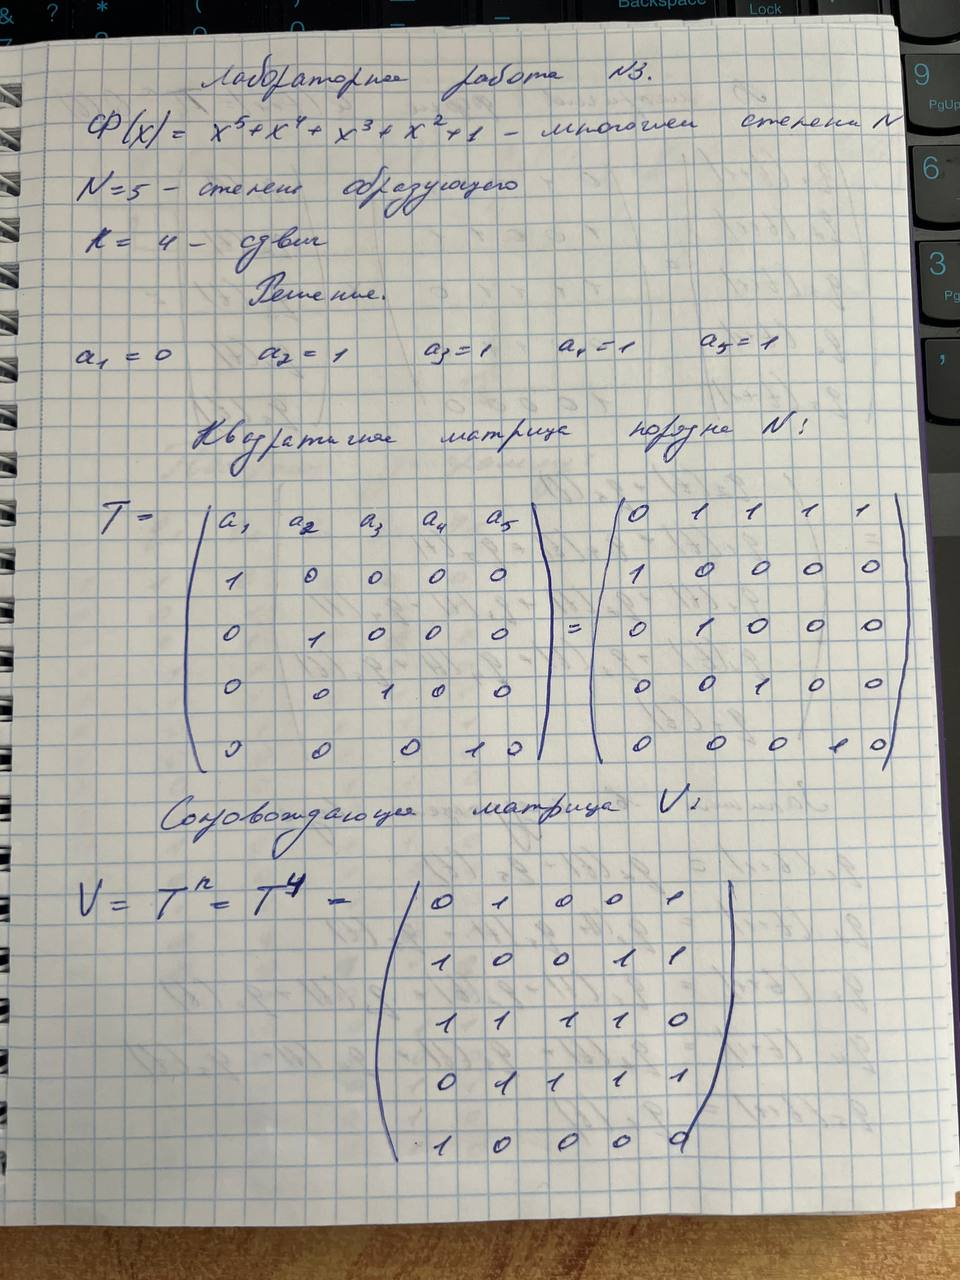 & 7
?
*
—
_
Backspace
Lock
9
PgUp
6
3
Pg
,
Лабораторная работа №3.
Ф(x) = x⁵+x⁴+x³+x²+1 – многочлен степени N
N=5 – степень образующего
k= 4 – сдвиг
Решение.
a₁ = 0 a₂ = 1 a₃=1 a₄=1 a₅=1
Квадратичная матрица порядка N:
T = ( a₁ a₂ a₃ a₄ a₅ ) = ( 0 1 1 1 1 )
1 0 0 0 0 1 0 0 0 0
0 1 0 0 0 0 1 0 0 0
0 0 1 0 0 0 0 1 0 0
0 0 0 1 0 0 0 0 1 0
Сопровождающая матрица V:
V = Tᵏ = T⁴ = ( 0 1 0 0 1 )
1 0 0 1 1
1 1 1 1 0
0 1 1 1 1
1 0 0 0 0